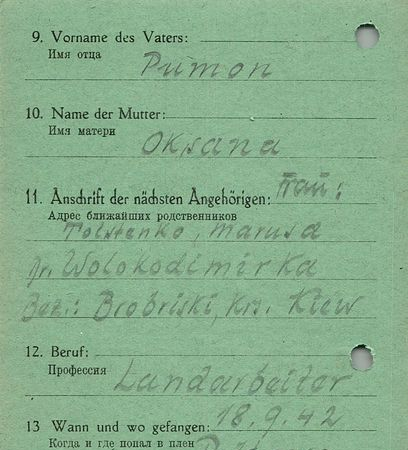 9. Vorname des Vaters:
Имя отца
Pumon
10. Name der Mutter:
Имя матери
Oksana
11. Anschrift der nächsten Angehörigen: Frau:
Адрес ближайших родственников
Tolstenko, Marusa
Wolokodimirka
Bez.: Brobriski, Krs. Kiew
12. Beruf:
Профессия
Landarbeiter
13 Wann und wo gefangen: 18.9.42
Когда и где попал в плен